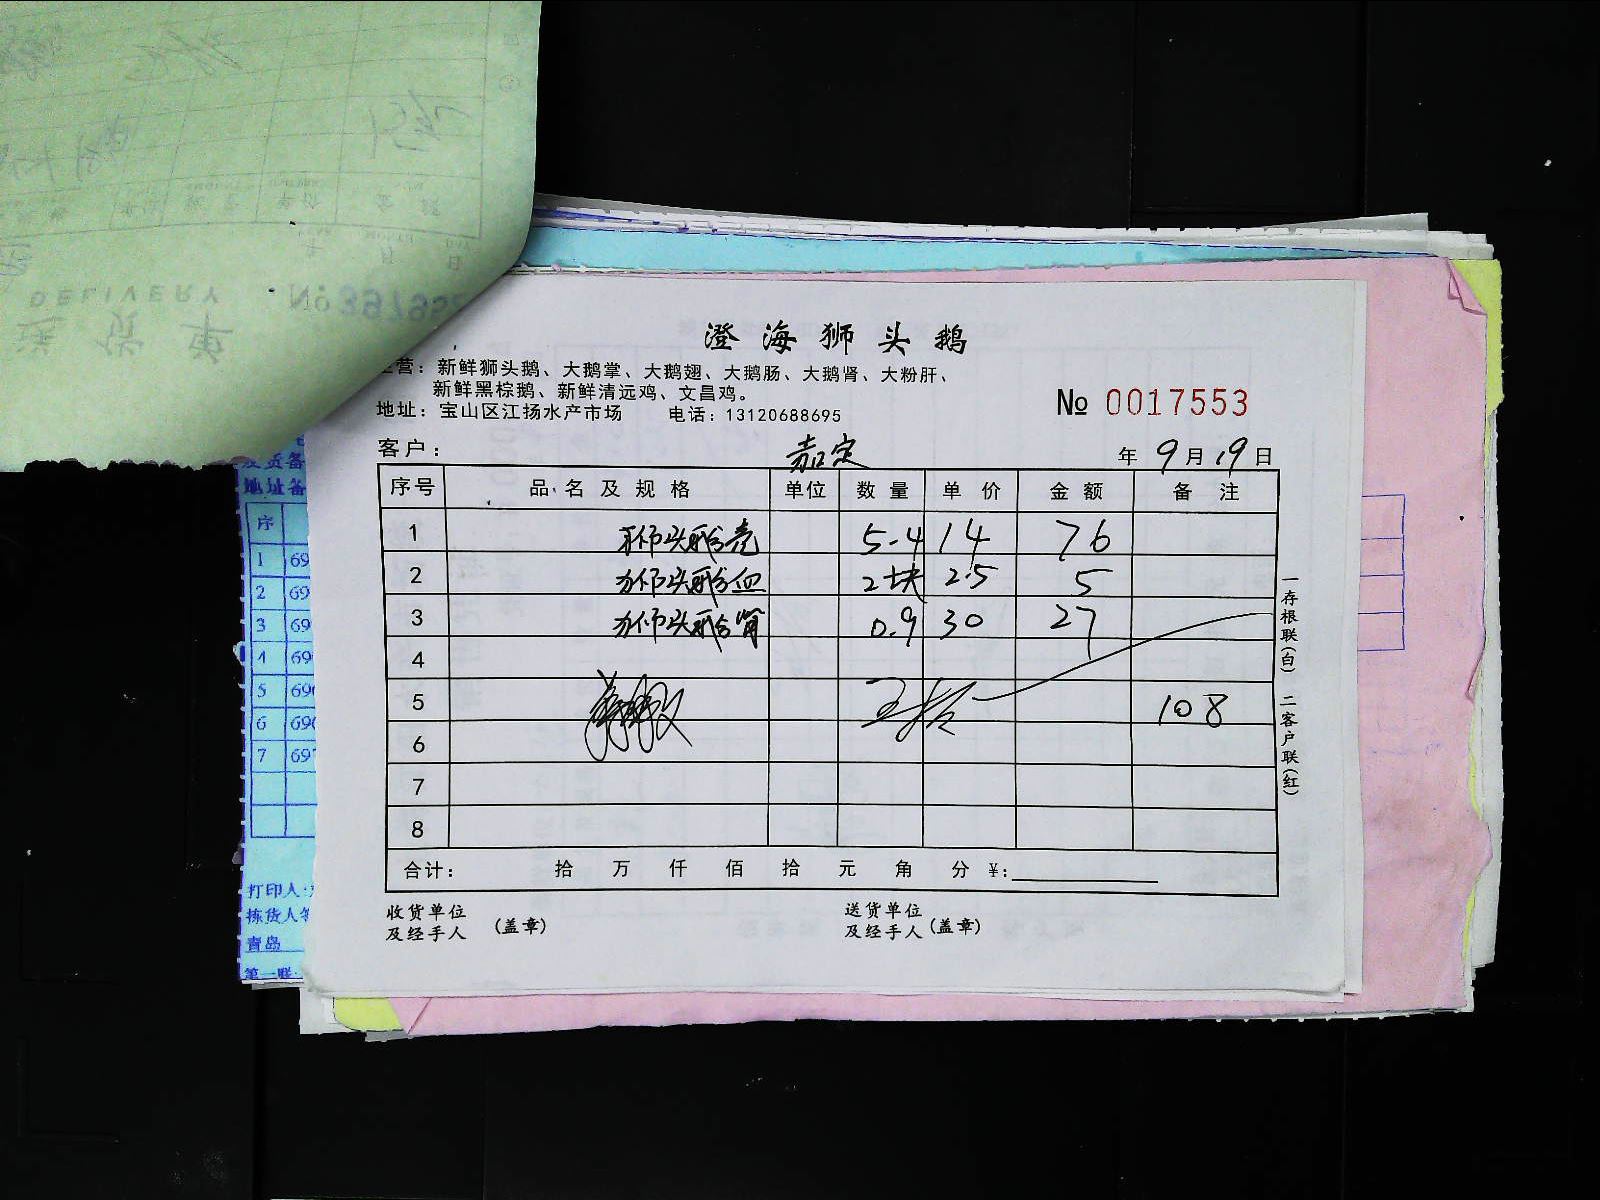 DELIVERY
送货单
No 397952
澄海狮头鹅
主营：新鲜狮头鹅、大鹅掌、大鹅翅、大鹅肠、大鹅肾、大粉肝、
新鲜黑棕鹅、新鲜清远鸡、文昌鸡。
地址：宝山区江扬水产市场 电话：13120688695
№ 0017553
客户： 嘉定 年 9 月 19 日
序号 品名及规格 单位 数量 单价 金额 备注
1 狮头鹅壳 5.4 14 76
2 狮头鹅血 2块 2.5 5
3 狮头鹅肾 0.9 30 27
4
5 108
6
7
8
合计： 拾 万 仟 佰 拾 元 角 分 ¥：
收货单位
及经手人 （盖章）
送货单位
及经手人（盖章）
一存根联（白） 二客户联（红）
地址备
序
1 69
2 69
3 69
4 69
5 69
6 69
7 69
打印人：
拣货人签
青岛
第一联：